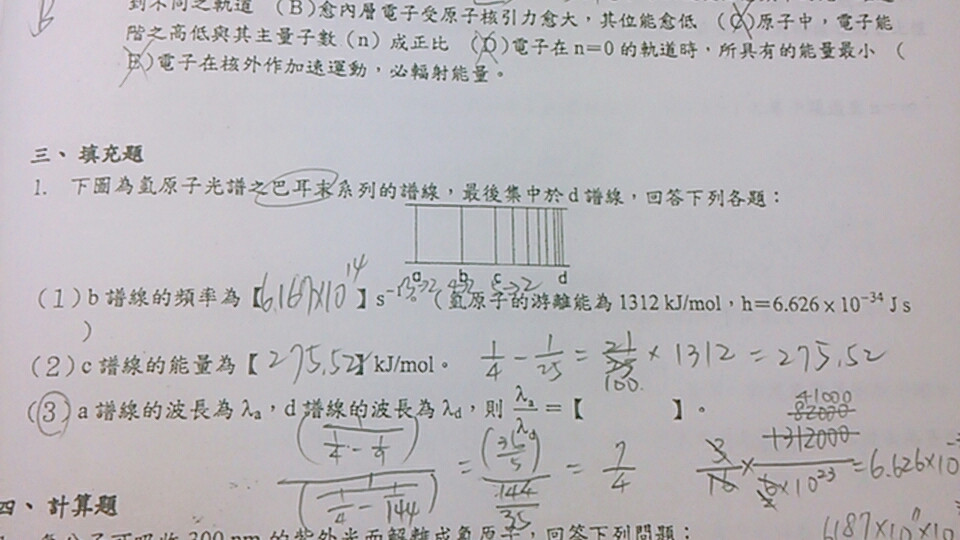 到不同之軌道 (B)愈內層電子受原子核引力愈大,其位能愈低 (C)原子中,電子能
階之高低與其主量子數(n)成正比 (D)電子在n=0的軌道時,所具有的能量最小 (
E)電子在核外作加速運動,必輻射能量。
三、填充題
1. 下圖為氫原子光譜之巴耳末系列的譜線,最後集中於d譜線,回答下列各題:
a b c d
3→2 4→2 5→2
(1)b譜線的頻率為【6.167×10^14】s⁻¹。(氫原子的游離能為1312 kJ/mol,h=6.626 x 10⁻³⁴ J s
)
(2)c譜線的能量為【275.52】kJ/mol。 1/4 - 1/25 = 21/100 × 1312 = 275.52
(3)a譜線的波長為λa,d譜線的波長為λd,則 λa/λd =【 】。
41000
82000
(1/(1/4 - 1/9)) / (1/(1/4 - 1/144)) = (36/5) / (144/35) = 7/4
3/16 × 1312000 / 6×10^23 = 6.626×10
四、計算題
6187×10
300 nm 的紫外光而解離成氫原子,回答下列問題: